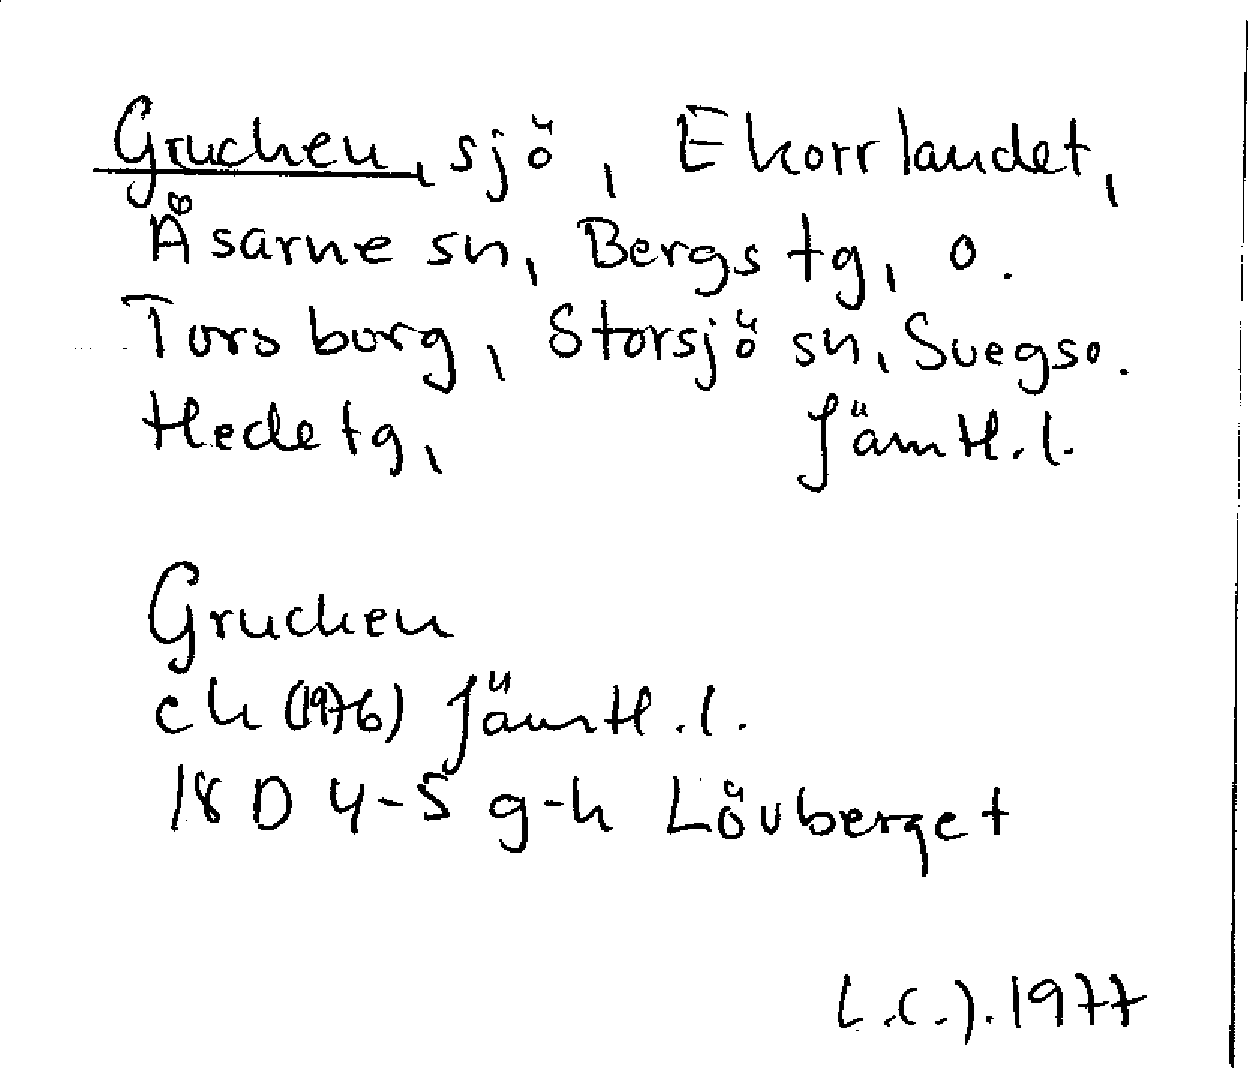 Grucken, sjö, Ekorrlandet,
Åsarne sn, Bergs tg, o.
Torsborg, Storsjö sn, Svegs o.
Hede tg, Jämtl. l.
Grucken
ek (1976) Jämtl. l.
18 D 4-5 g-h Lövberget
L.C.J. 1977